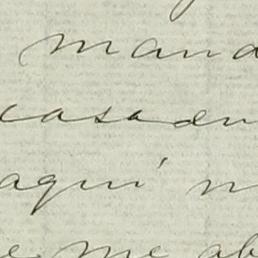 mand
casa en
aquí n
me ab